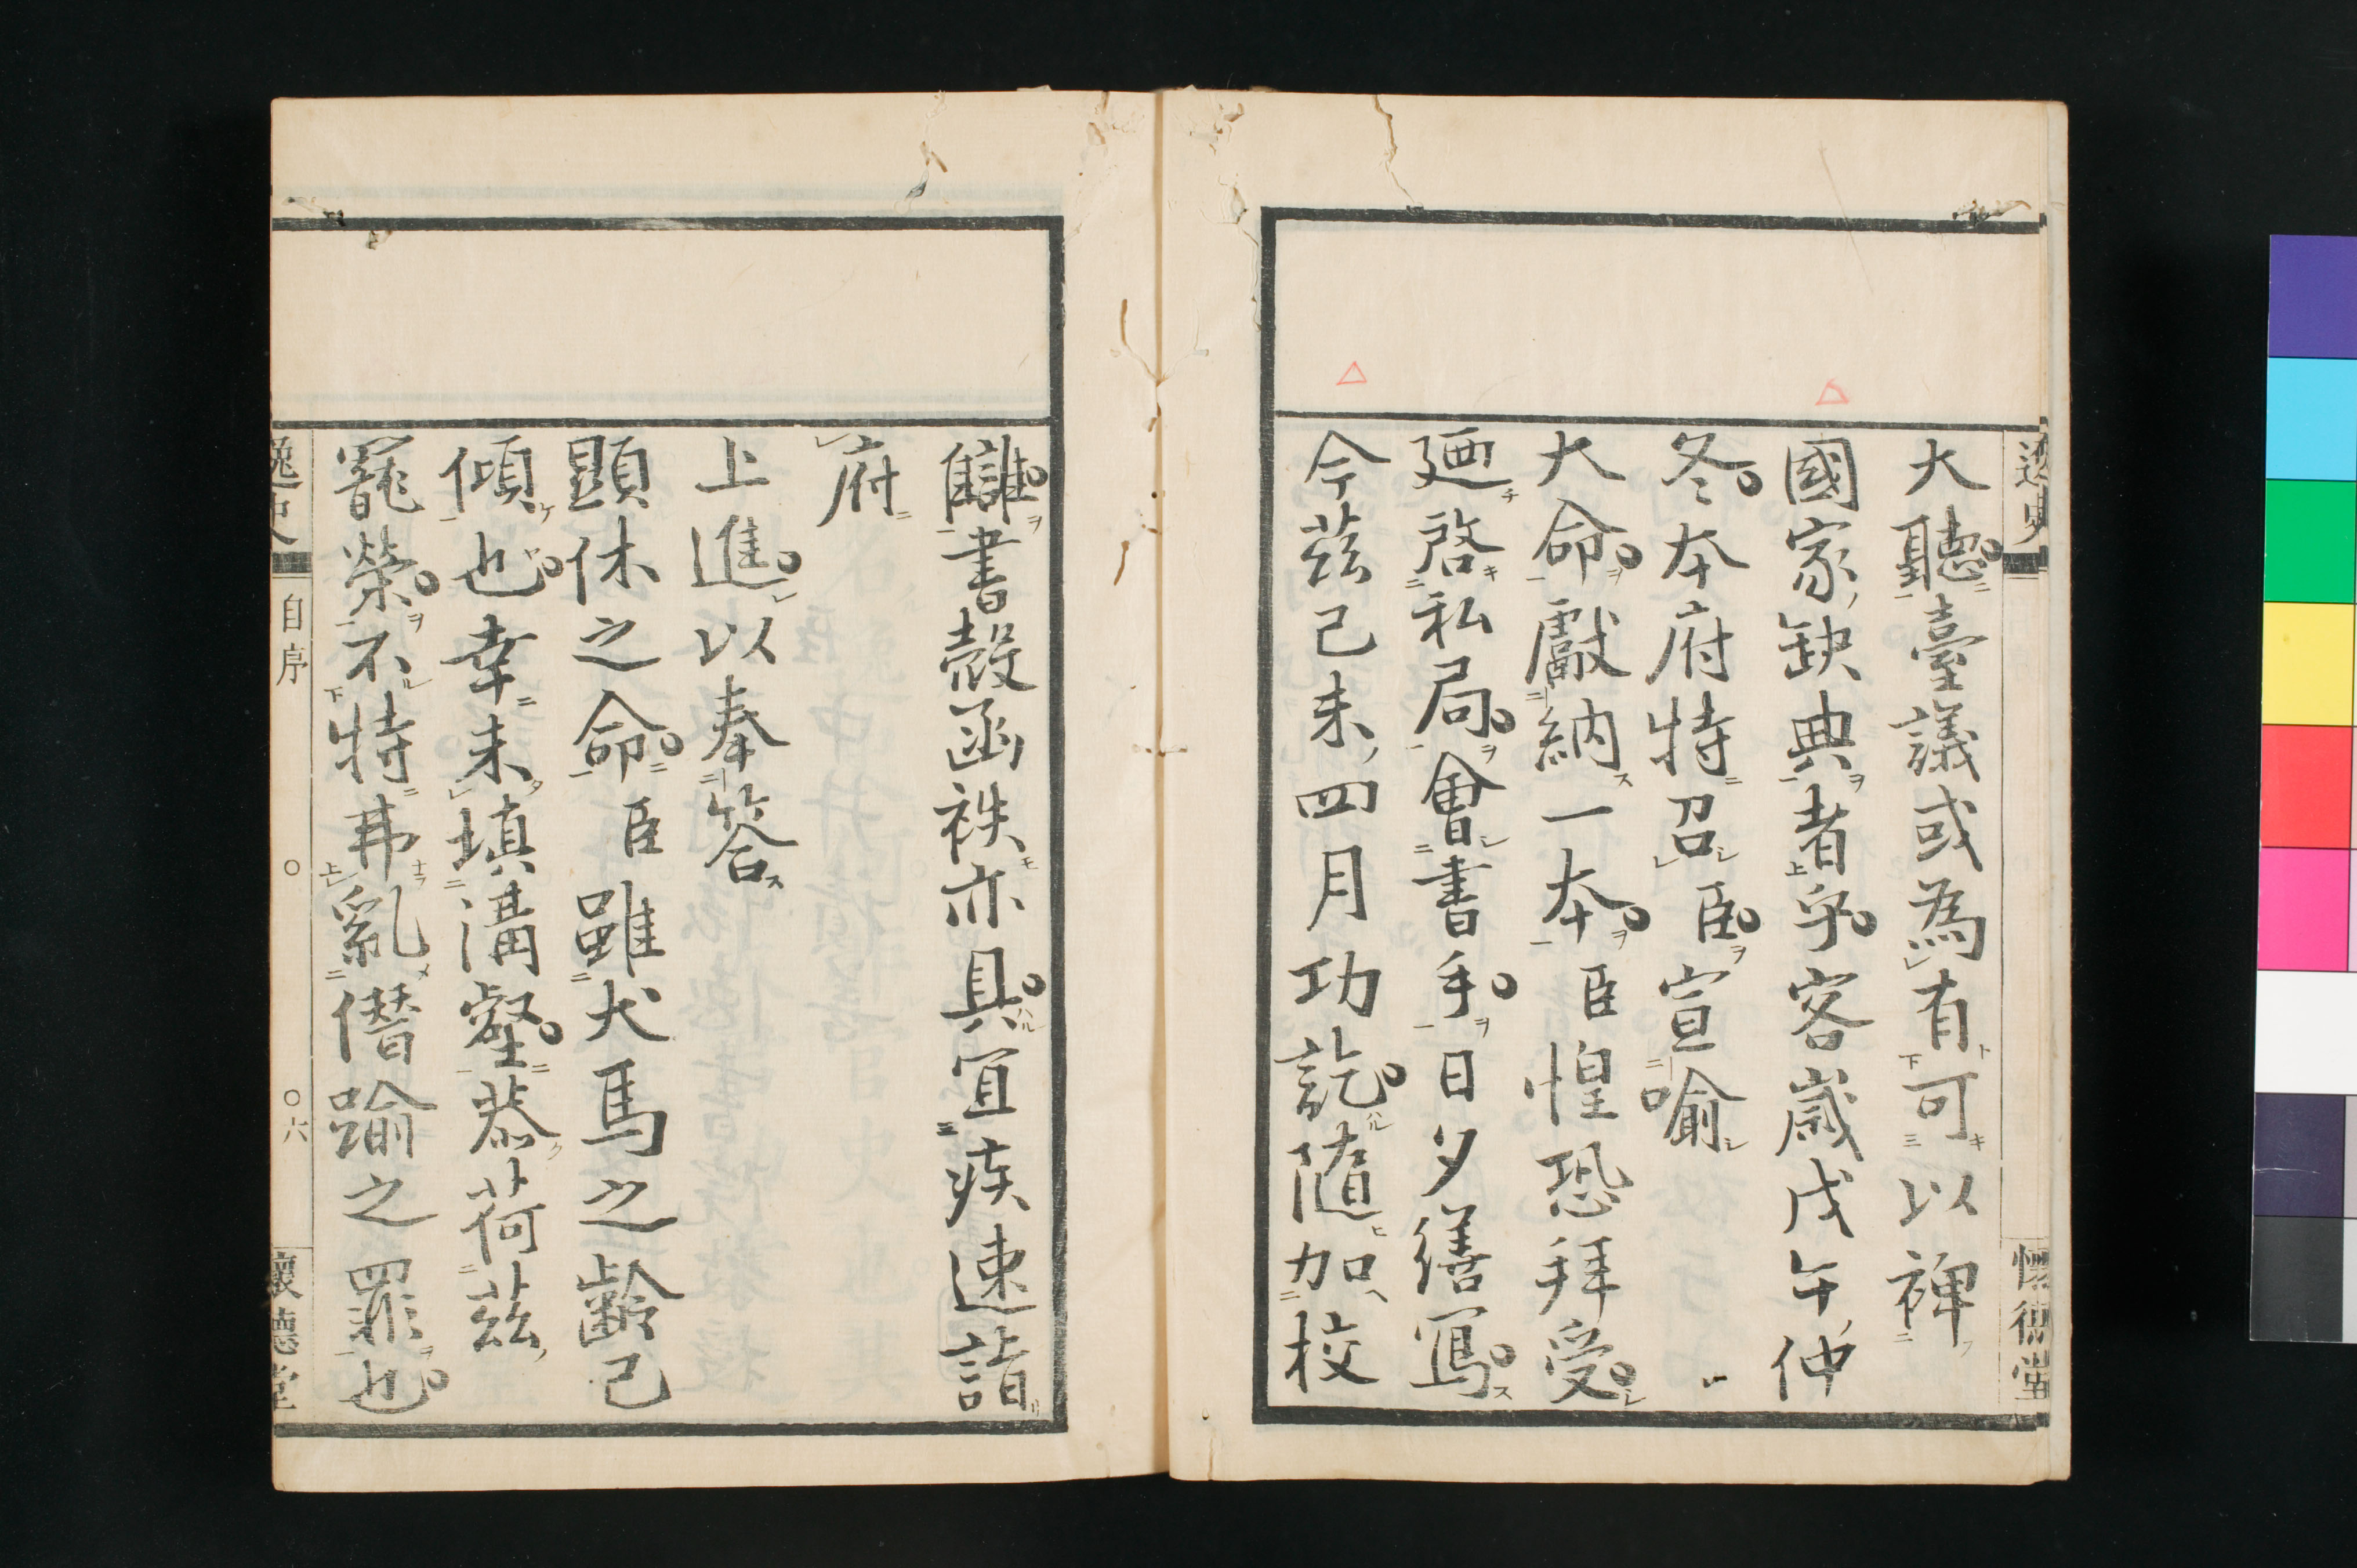 逸史
懷德堂
大聽。臺議或為有可以裨
國家缺典者乎。客歲戊午仲
冬。本府特召臣。宣喻
大命。獻納一本。臣惶恐拜受。
廼啓私局。會書手。日夕繕寫。
今茲己未四月功訖。隨加校
讎。書殻函袟亦具。宜疾速詣
府
上進。以奉答
顕休之命。臣雖犬馬之齡已
傾也。幸未填溝壑。恭荷茲
寵榮。不特弗亂僭踰之罪也。
逸史
自序
○
○六
懷德堂